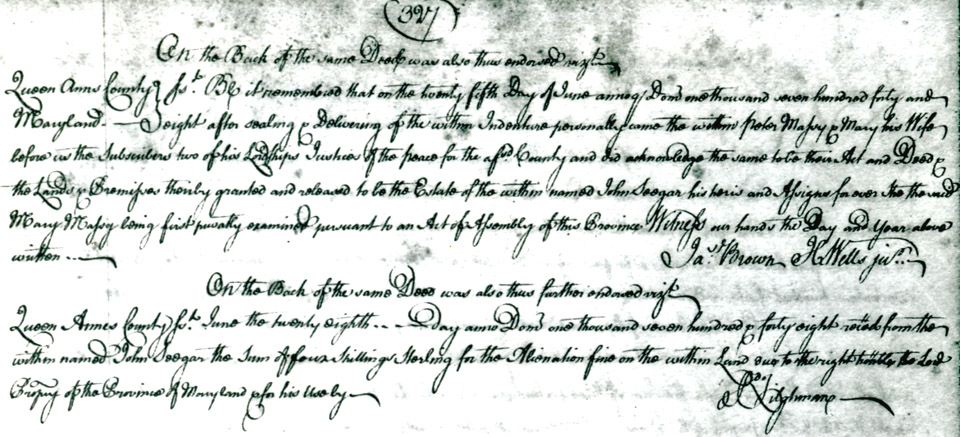 327
On the Back of the same Deed was also thus endorsed vizt
Queen Anns County } Sst. BE it remembred that on the twenty fifth Day of June annoq Domi one thousand seven hundred forty and
Maryland eight after sealing & Delivering of the within Indenture personally came the within Peter Massy & Mary his Wife
before us the Subscribers two of his Lordships Justices of the peace for the afsd County and did acknowledge the same to be their Act and Deed &
the Lands & Premisses thereby granted and released to be the Estate of the within named John Seegar his heirs and Assigns for ever she the said
Mary Massy being first privatly examined pursuant to an Act of Assembly of this Province Witness our hands the Day and Year above
written Jas. Brown H Wells junr.
On the Back of the same Deed was also thus further endorsed vizt
Queen Annes County Sst. June the twenty eighth Day anno Domi one thousand seven hundred & forty eight recied from the
within named John Seegar the Sum of four Shillings Sterling for the Alienation fine on the within Land due to the right honble the Lord
Propry of the Province of Maryland & for his Use by Tilghman